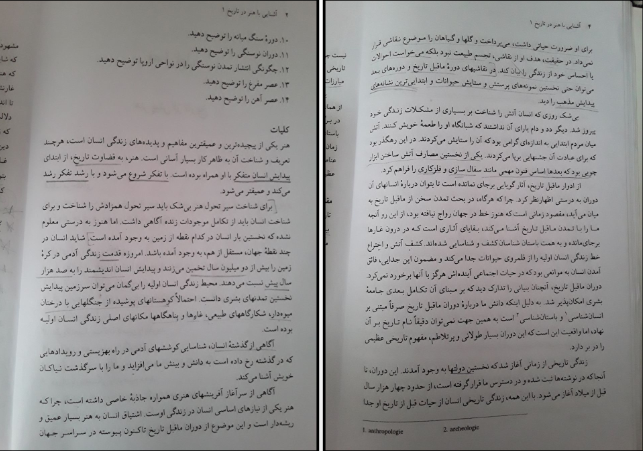 ۲ آشنایی با هنر در تاریخ ۱
۱۰. دورهٔ سنگ میانه را توضیح دهید.
۱۱. دوران نوسنگی را توضیح دهید.
۱۲. چگونگی انتشار تمدن نوسنگی را در نواحی اروپا توضیح دهید.
۱۳. عصر مفرغ را توضیح دهید.
۱۴. عصر آهن را توضیح دهید.
کلیات
هنر یکی از پیچیده‌ترین و عمیقترین مفاهیم و پدیده‌های زندگی انسان است، هرچند
تعریف و شناخت آن به ظاهر کار بسیار آسانی است. هنر، به قضاوت تاریخ، از ابتدای
پیدایش انسان متفکر با او همراه بوده است. با تفکر شروع می‌شود و با رشد تفکر رشد
می‌کند و عمیقتر می‌شود.
برای شناخت سیر تحول هنر بی‌شک باید سیر تحول همزادش را شناخت و برای
شناخت انسان باید از تکامل موجودات زنده آگاهی داشت. اما هنوز به درستی معلوم
نشده که نخستین بار انسان در کدام نقطه از زمین به وجود آمده است. شاید انسان در
چند نقطهٔ جهان، مستقل از هم، به وجود آمده باشد. امروزه قدمت زندگی آدمی در کرهٔ
زمین را بیش از دو میلیون سال تخمین می‌زنند و پیدایش انسان اندیشمند را به صد هزار
سال پیش نسبت می‌دهند. محیط زندگی انسان اولیه را بی‌گمان می‌توان سرزمین پیدایش
نخستین تمدنهای بشری دانست. احتمالاً کوهستانهای پوشیده از جنگلهایی با درختان
میوه‌دار، شکارگاههای طبیعی، غارها و پناهگاهها مکانهای اصلی زندگی انسان اولیه
بوده است.
آگاهی از گذشتهٔ انسان، شناسایی کوششهای آدمی در راه بهزیستی و رویدادهایی
که در گذشته رخ داده است به دانش و بینش ما می‌افزاید و ما را با سرگذشت نیاکان
خویش آشنا می‌کند.
آگاهی از سرآغاز آفرینشهای هنری همواره جاذبهٔ خاصی داشته است، چرا که
هنر یکی از نیازهای اساسی انسان در زندگی اوست. اشتیاق انسان به هنر بسیار عمیق و
ریشه‌دار است و این موضوع از دوران ماقبل تاریخ تاکنون پیوسته در سراسر جهان
۴ آشنایی با هنر در تاریخ ۱
برای او ضرورت حیاتی داشت، می‌پرداخت و گلها و گیاهان را موضوع نقاشی قرار
نمی‌داد. در حقیقت، هدف او از نقاشی، تجسم طبیعت نبود بلکه می‌خواست احوالات
یا احساس خود از زندگی را بیان کند. در نقاشیهای دورهٔ ماقبل تاریخ و دوره‌های بعد
می‌توان حتی نخستین نمونه‌های پرستش و ستایش حیوانات و ابتدایی‌ترین نشانه‌های
پیدایش مذهب را دید.
بی‌شک روزی که انسان آتش را شناخت بر بسیاری از مشکلات زندگی خود
پیروز شد. دیگر دد و دام یارای آن نداشتند که شبانگاه او را طعمهٔ خویش کنند. آتش
میان مردم ابتدایی به اندازه‌ای گرامی بود که آن را ستایش می‌کردند. در این رهگذر بود
که برای عبادت آن جشنهایی برپا می‌کردند. یکی از نخستین مصارف آتش ساختن ابزار
چوبی بود که بعدها اساس فنون مهمی مانند سفال سازی و فلزکاری را فراهم کرد.
از ادوار ماقبل تاریخ، آثار گویایی برجای نمانده است تا بتوان دربارهٔ انسانهای آن
دوران به درستی اظهار نظر کرد. چرا که هرگاه در بحث تمدن سخن از ماقبل تاریخ به
میان می‌آید، مقصود زمانی است که هنوز خط در جهان رواج نیافته بود، از این رو آنچه
ما را با تمدن ماقبل تاریخ آشنا می‌کند، بقایای آثاری است که در درون غارها
برجای‌مانده و به همت باستان شناسان کشف و شناسایی شده‌اند. کشف آتش و اختراع
خط زندگی انسان اولیه را از قلمروی حیوانات جدا می‌کند و مضمون این جدایی، فائق
آمدن انسان به موانعی بود که در حیات اجتماعی آینده‌اش هرگز با آنها برخورد نمی‌کرد.
دوران ماقبل تاریخ، آنچنان بنیانی را تدارک دید که بر مبنای آن تکامل بعدی جامعهٔ
بشری امکان‌پذیر شد. به دلیل اینکه دانش ما دربارهٔ دوران ماقبل تاریخ صرفاً مبتنی بر
انسان‌شناسی۱ و باستان‌شناسی۲ است به همین جهت نمی‌توان دقیقاً نام تاریخ بر آن
نهاد، اما واقعیت این است که این دوران بسیار طولانی و پرتلاطم، مفهوم تاریخی عظیمی
را در بر دارد.
زندگی تاریخی از زمانی آغاز شد که نخستین دولتها به وجود آمدند. این دوران، تا
آنجا که در نوشته‌ها ثبت شده و در دسترس ما قرار گرفته است، از حدود چهار هزار سال
قبل از میلاد آغاز می‌شود. با این همه، زندگی تاریخی انسان از حیات قبل از تاریخ او جدا
1. anthropologie 2. archeologie